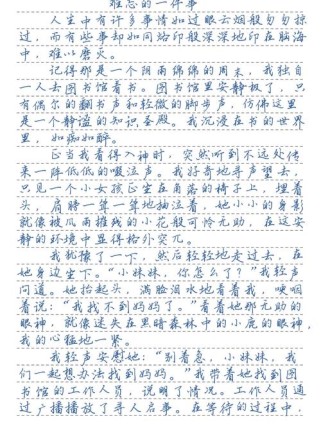 难忘的一件事
人生中有许多事情如过眼云烟般匆匆掠
过，而有些事却如同烙印般深深地印在脑海
中，难以磨灭。
记得那是一个阴雨绵绵的周末，我独自
一人去图书馆看书。图书馆里安静极了，只
有偶尔的翻书声和轻微的脚步声，仿佛这里
是一个静谧的知识圣殿。我沉浸在书的世界
里，如痴如醉。
正当我看得入神时，突然听到不远处传
来一阵低低的啜泣声。我好奇地寻声望去，
只见一个小女孩正坐在角落的椅子上，埋着
头，肩膀一耸一耸地抽泣着，她小小的身影
就像被风雨摧残的小花般可怜无助，在这安
静的环境中显得格外突兀。
我犹豫了一下，然后轻轻地走过去，在
她身边坐下。“小妹妹，你怎么了？”我轻声
问道。她抬起头，满脸泪水地看着我，哽咽
着说：“我找不到妈妈了。”看着她那无助的
眼神，就像迷失在黑暗森林中的小鹿的眼神，
我的心猛地一紧。
我轻声安慰她：“别着急，小妹妹，我
们一起想办法找到妈妈。”我带着她找到图
书馆的工作人员，说明了情况。工作人员通
过广播播放了寻人启事。在等待的过程中，